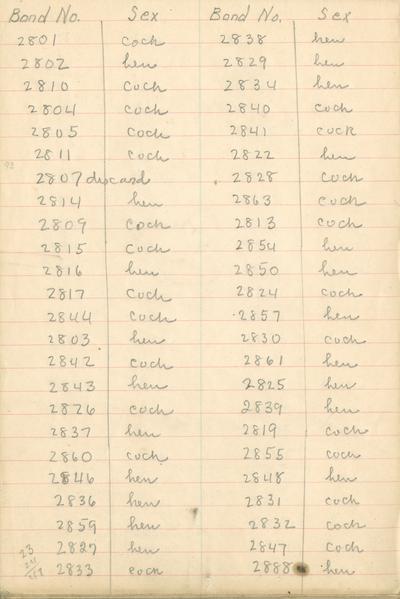 Band No. Sex Band No. Sex
2801 cock 2838 hen
2802 hen 2829 hen
2810 cock 2834 hen
2804 cock 2840 cock
2805 cock 2841 cock
2811 cock 2822 hen
2807 discard 2828 cock
2814 hen 2863 cock
2809 cock 2813 cock
2815 cock 2854 hen
2816 hen 2850 hen
2817 cock 2824 cock
2844 cock 2857 hen
2803 hen 2830 cock
2842 cock 2861 hen
2843 hen 2825 hen
2826 cock 2839 hen
2837 hen 2819 cock
2860 cock 2855 cock
2846 hen 2848 hen
2836 hen 2831 cock
2859 hen 2832 cock
23 2827 hen 2847 cock
2833 cock 2888 hen